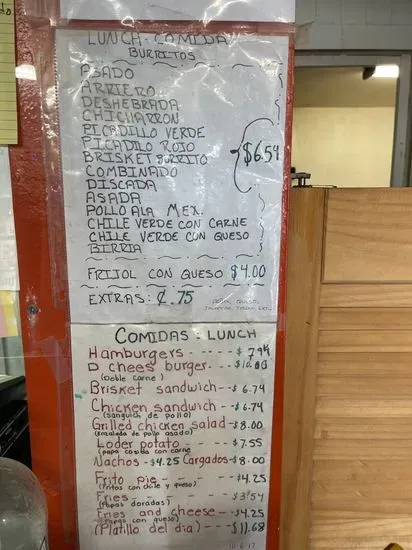 LUNCH - COMIDA
BURRITOS
ASADO
ARRIERO
DESHEBRADA
CHICHARRON
PICADILLO VERDE
PICADILO ROJO
BRISKET BURRITO
COMBINADO
DISCADA
ASADA
POLLO ALA MEX.
CHILE VERDE CON CARNE
CHILE VERDE CON QUESO
BIRRIA
$6.54
FRIJOL CON QUESO $4.00
EXTRAS: ¢.75
COMIDAS : LUNCH
Hamburgers ---- $7.94
D chees burger. --- $10.00
(Doble carne)
Brisket sandwich - $6.74
Chicken sandwich - $6.74
(sanguich de pollo)
Grilled chicken salad - $8.00
(ensalada de pollo asado)
Loder potato - - - $7.55
(papa cosida con carne
Nachos - $4.25 Cargados - $8.00
Frito pie - - - - $4.25
(Fritos con chile y queso)
Fries - - - - $3.54
(Papas doradas)
Fries and cheese - $4.25
(Papas con queso)
(Platillo del dia) - $11.68
10-6-17